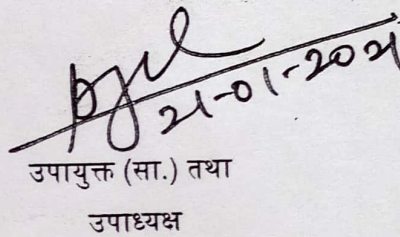 21-01-2021
उपायुक्त (सा.) तथा
उपाध्यक्ष